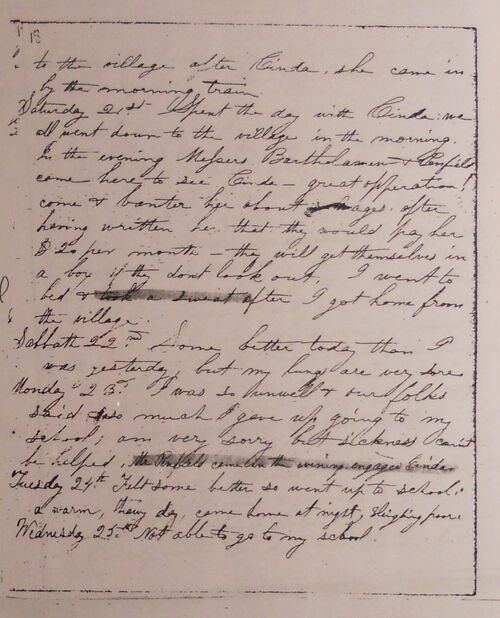 18
to the village after Cinda, she came in
by the morning train.
Saturday 21st Spent the day with Cinda: we
all went down to the village in the morning.
In the evening Messers Bartholamew & Penfield
came here to see Cinda - great opperation!
come & banter her about wages after
having written her that they would pay her
$20 per month - they will get themselves in
a box if they dont look out. I went to
bed & took a sweat after I got home from
the village.
Sabbath 22nd Some better today than I
was yesterday, but my lungs are very sore
Monday 23d I was so unwell & our folks
said so much I gave up going to my
school; am very sorry but sickness can't
be helped, the Penfields came in the evening engaged Cinda.
Tuesday 24th Felt some better so went up to school:
a warm, thawy day, came home at night, sleighing poor.
Wednesday 25th Not able to go to my school.